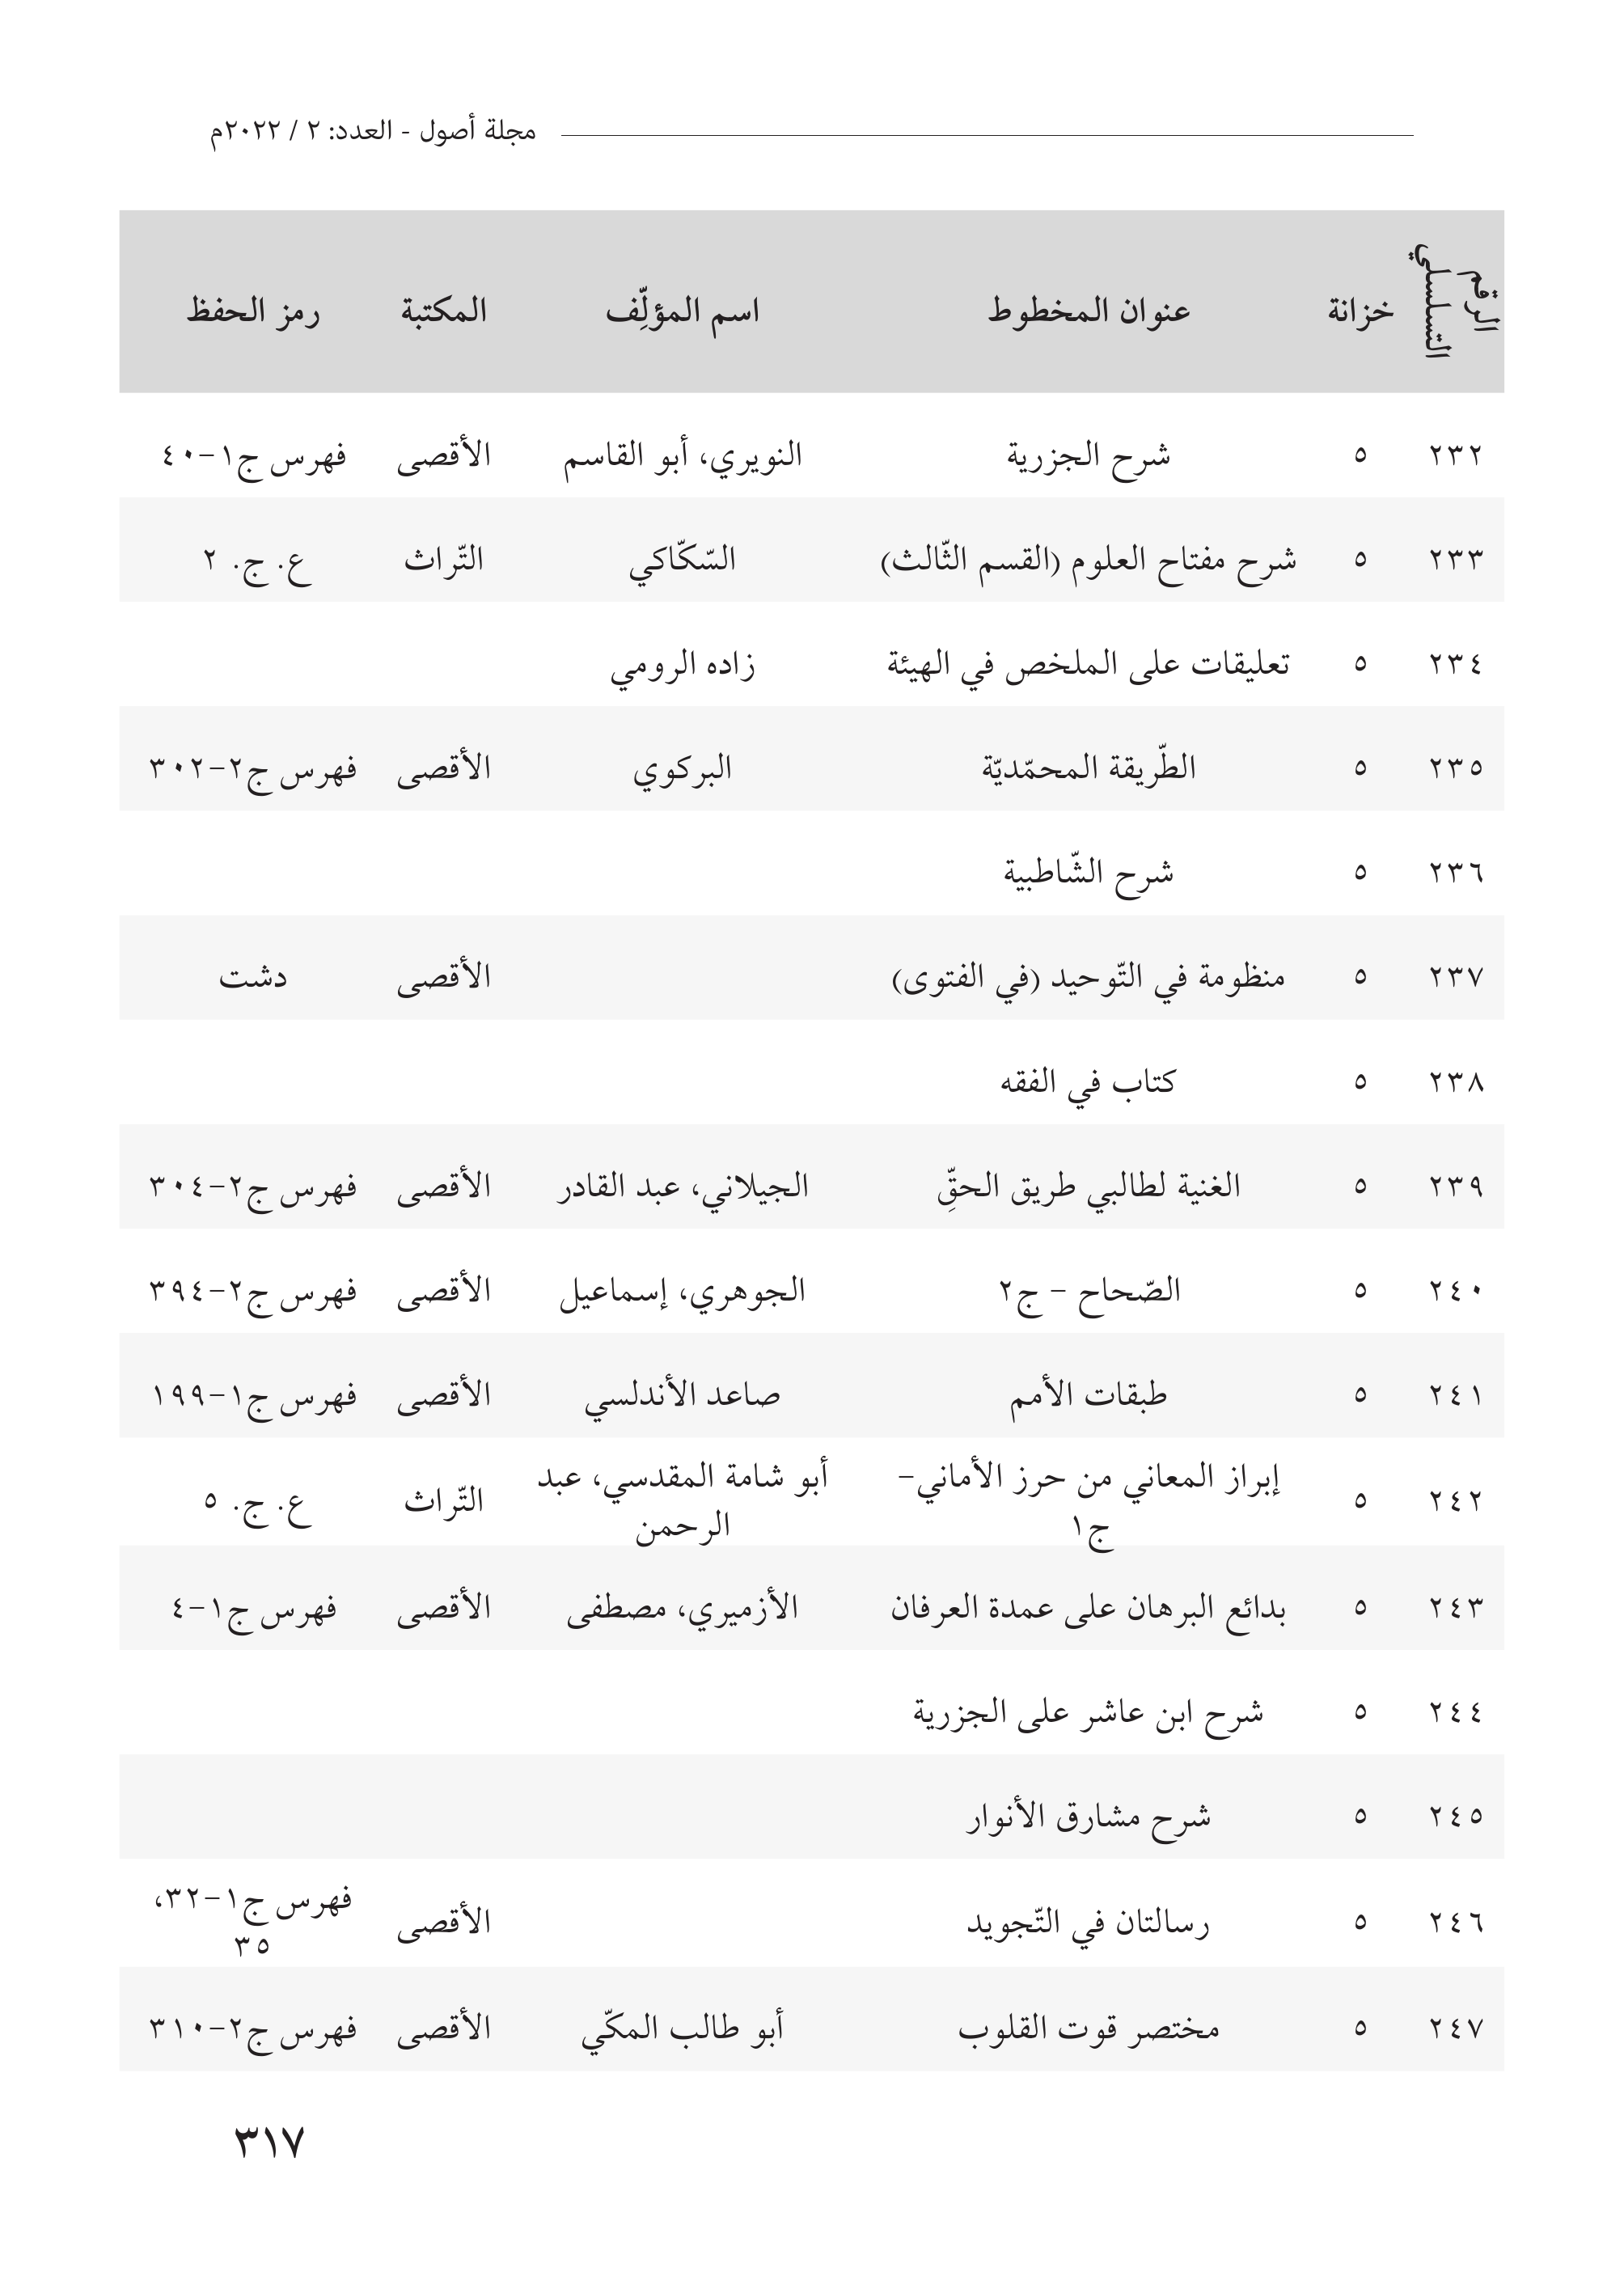 مجلة أصول - العدد: ٢ / ٢٠٢٢م
الرقم التسلسلي خزانة عنوان المخطوط اسم المؤلِّف المكتبة رمز الحفظ
٢٣٢ ٥ شرح الجزرية النويري، أبو القاسم الأقصى فهرس ج١-٤٠
٢٣٣ ٥ شرح مفتاح العلوم (القسم الثّالث) السّكّاكي التّراث ع. ج. ٢
٢٣٤ ٥ تعليقات على الملخص في الهيئة زاده الرومي
٢٣٥ ٥ الطّريقة المحمّديّة البركوي الأقصى فهرس ج٢-٣٠٢
٢٣٦ ٥ شرح الشّاطبية
٢٣٧ ٥ منظومة في التّوحيد (في الفتوى) الأقصى دشت
٢٣٨ ٥ كتاب في الفقه
٢٣٩ ٥ الغنية لطالبي طريق الحقِّ الجيلاني، عبد القادر الأقصى فهرس ج٢-٣٠٤
٢٤٠ ٥ الصّحاح - ج٢ الجوهري، إسماعيل الأقصى فهرس ج٢-٣٩٤
٢٤١ ٥ طبقات الأمم صاعد الأندلسي الأقصى فهرس ج١-١٩٩
٢٤٢ ٥ إبراز المعاني من حرز الأماني- ج١ أبو شامة المقدسي، عبد الرحمن التّراث ع. ج. ٥
٢٤٣ ٥ بدائع البرهان على عمدة العرفان الأزميري، مصطفى الأقصى فهرس ج١-٤
٢٤٤ ٥ شرح ابن عاشر على الجزرية
٢٤٥ ٥ شرح مشارق الأنوار
٢٤٦ ٥ رسالتان في التّجويد الأقصى فهرس ج١-٣٢، ٣٥
٢٤٧ ٥ مختصر قوت القلوب أبو طالب المكّي الأقصى فهرس ج٢-٣١٠
٣١٧